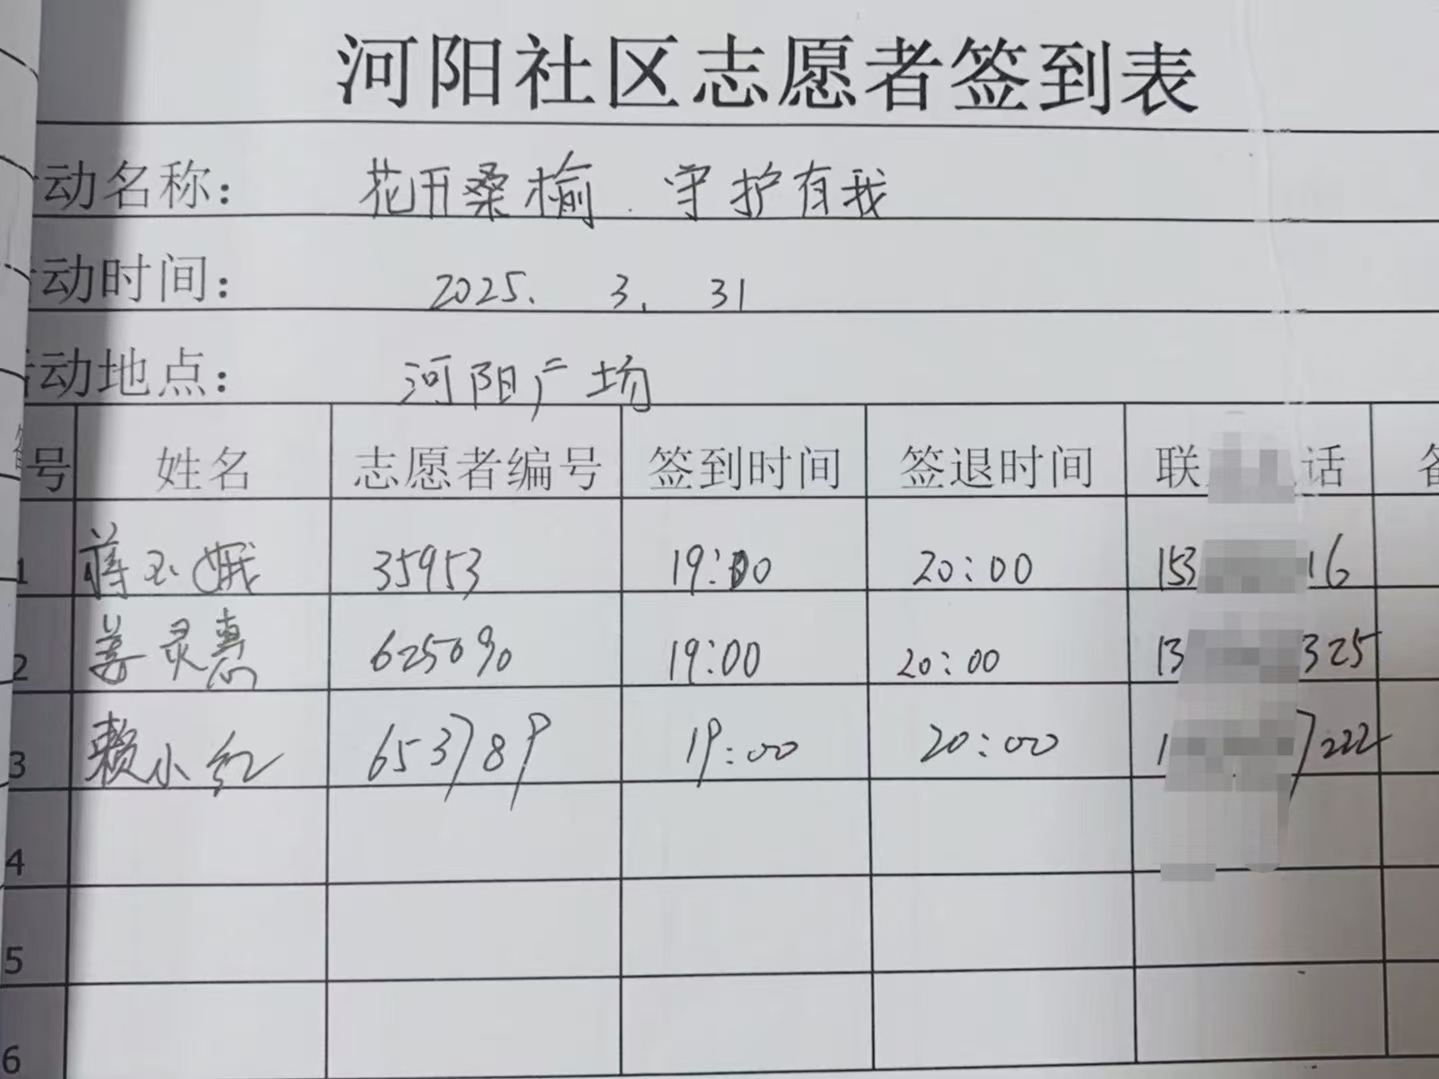 河阳社区志愿者签到表
动名称： 花开桑榆 守护有我
动时间： 2025. 3. 31
动地点： 河阳广场
号 姓名 志愿者编号 签到时间 签退时间 联 话
1 蒋玉娥 35953 19:00 20:00 153 16
2 姜灵惠 625090 19:00 20:00 13 325
3 赖小红 653789 19:00 20:00 1 7222
4
5
6